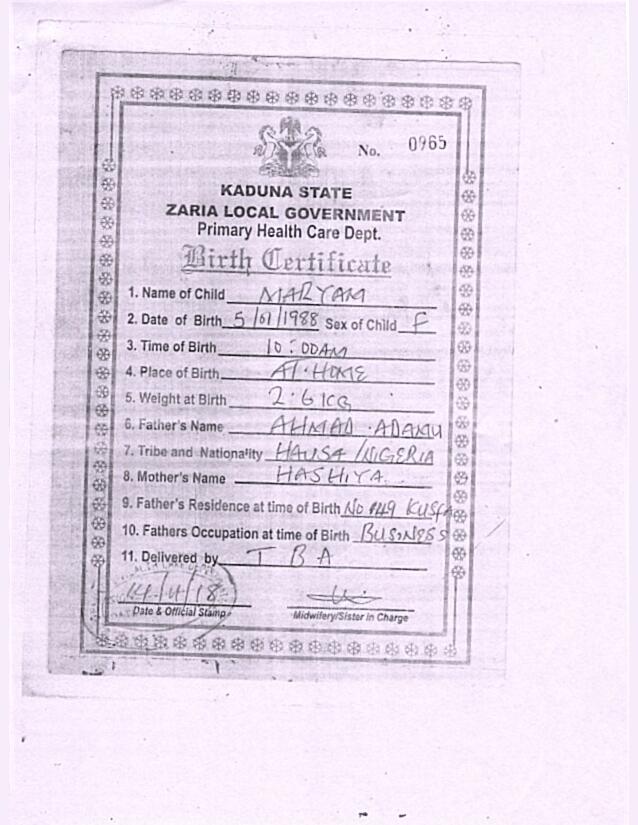 No. 0965
KADUNA STATE
ZARIA LOCAL GOVERNMENT
Primary Health Care Dept.
Birth Certificate
1. Name of Child MARYAM
2. Date of Birth 5/01/1988 Sex of Child F
3. Time of Birth 10:00AM
4. Place of Birth AT.HOME
5. Weight at Birth 2.6KG
6. Father's Name AHMAD.ADAMU
7. Tribe and Nationality HAUSA/NIGERIA
8. Mother's Name HASHIYA.
9. Father's Residence at time of Birth No 49 KUSFA
10. Fathers Occupation at time of Birth BUSiNESS
11. Delivered by T B A
Date & Official Stamp
Midwifery/Sister in Charge